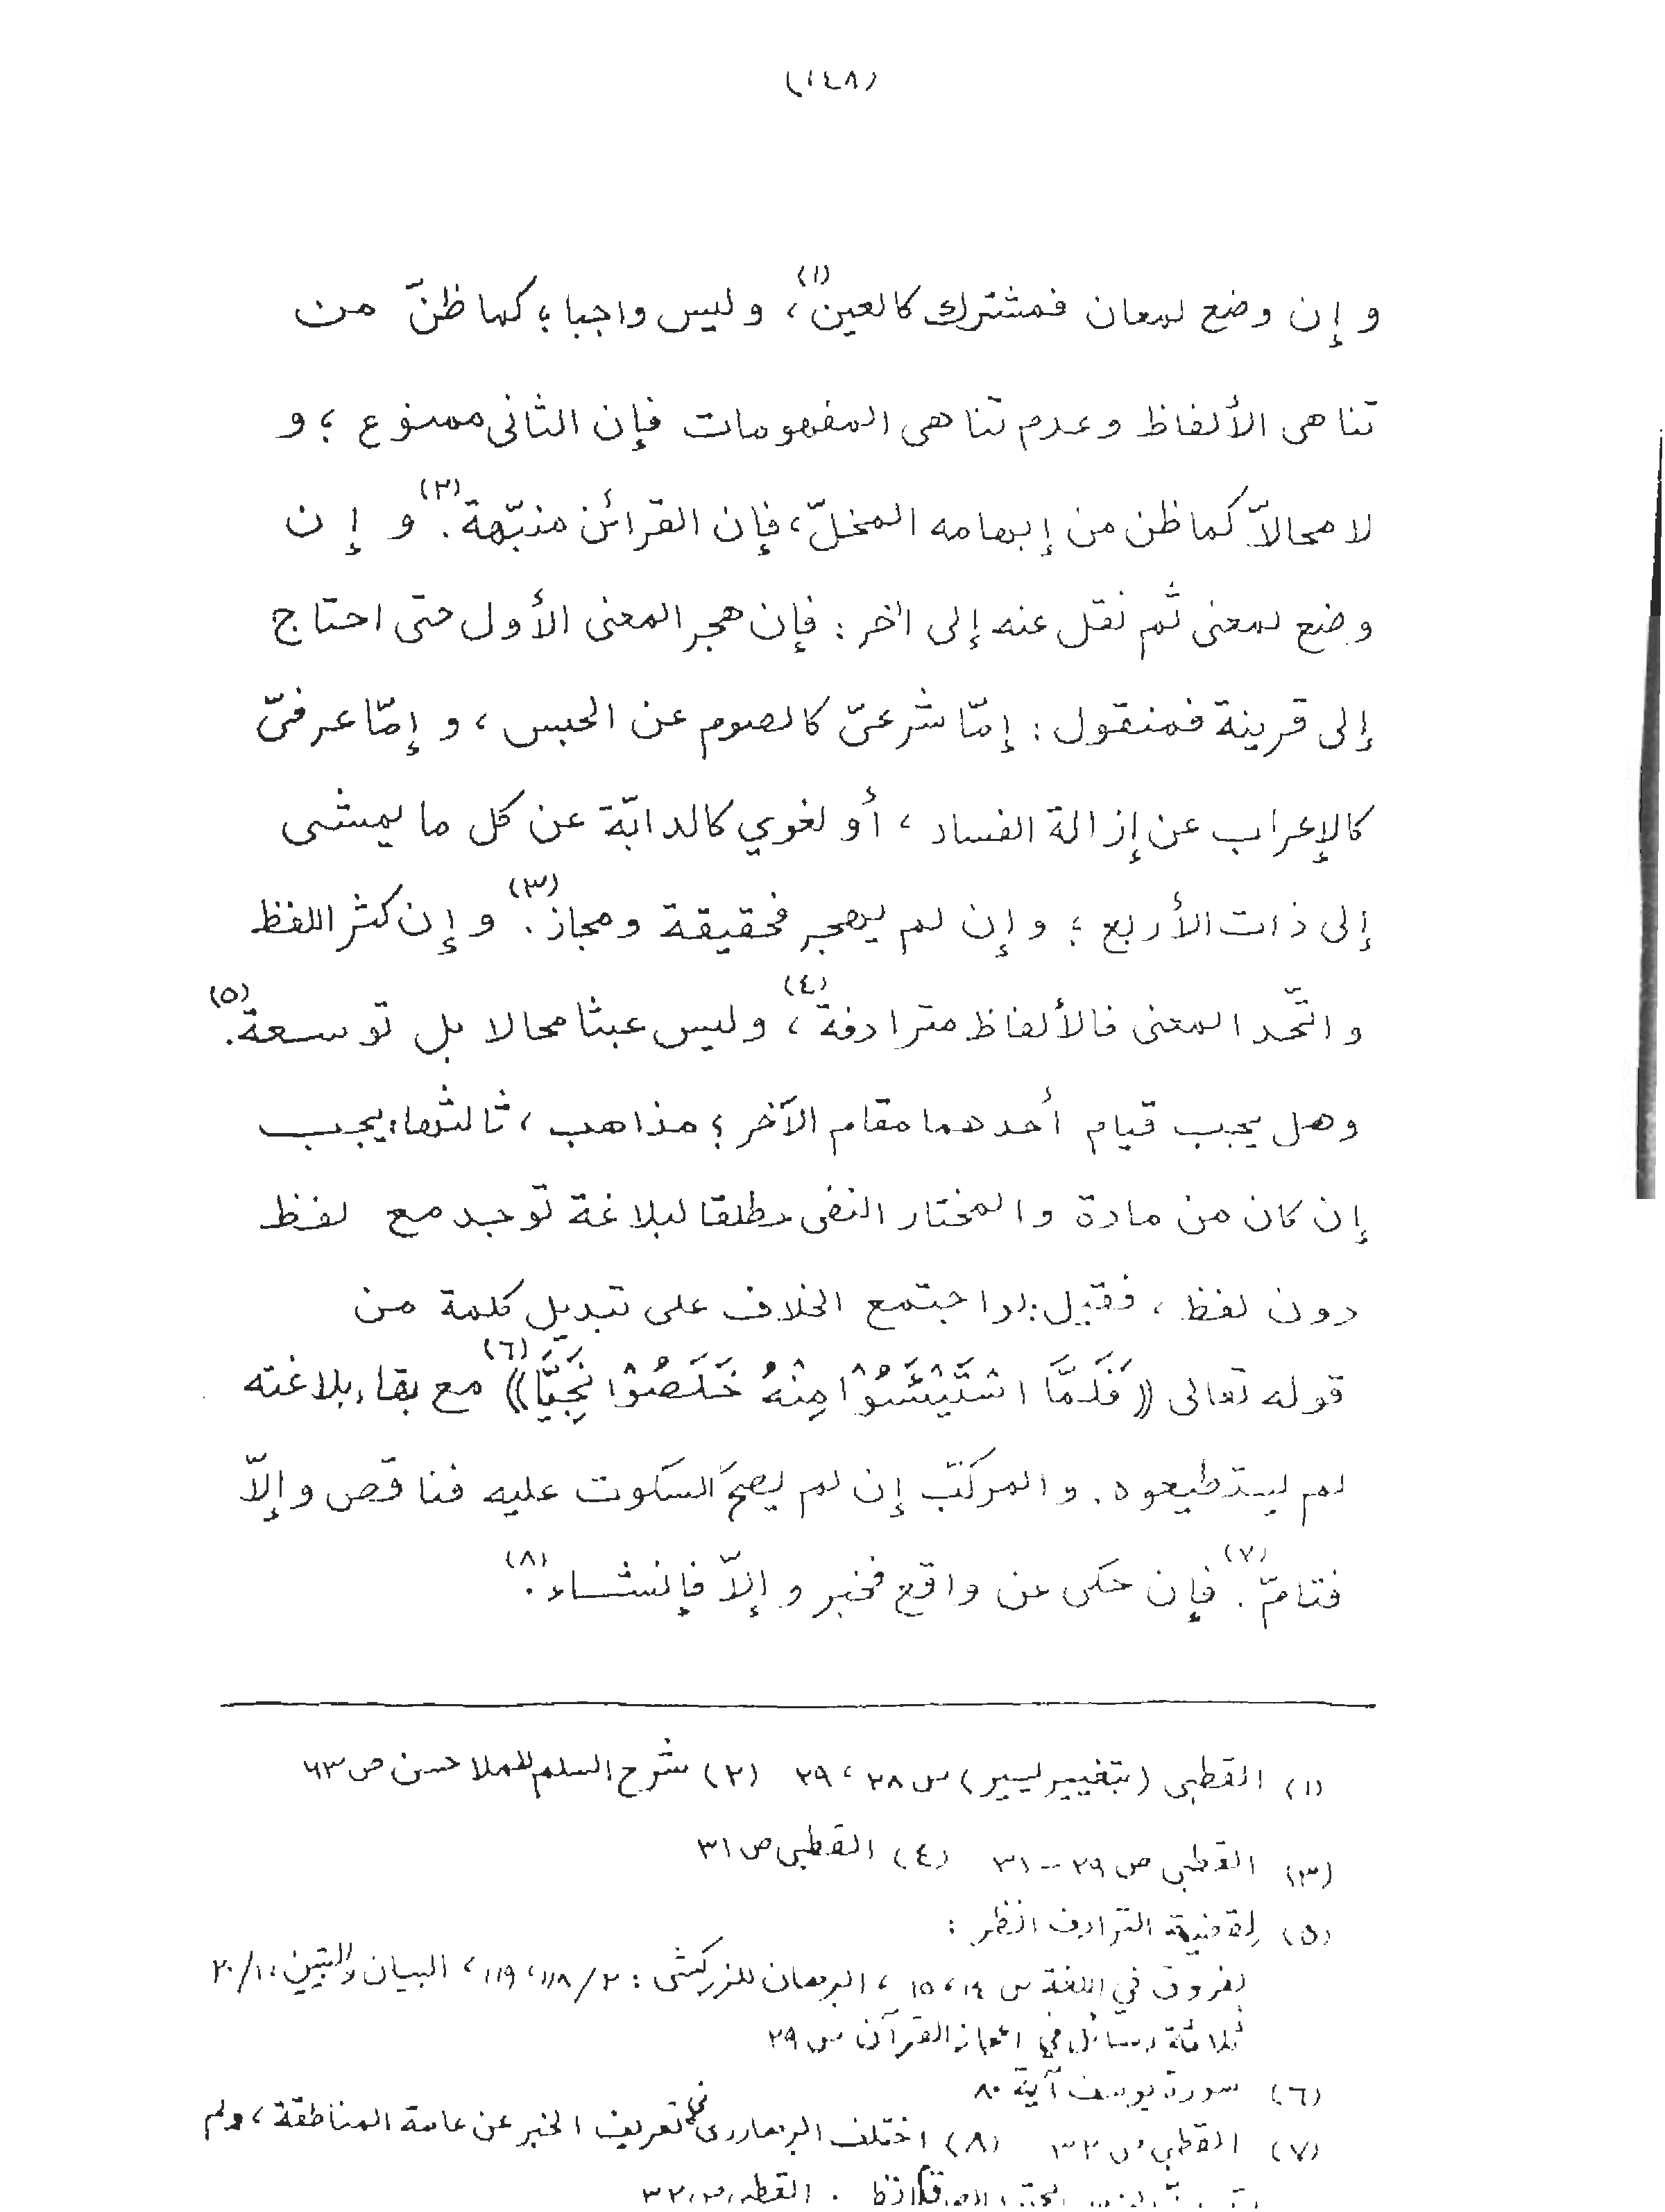 (١٤٨)
و إن وضع لمعان فمشترك كالعين(١)، وليس واجبا؛ كما ظنّ من
تناهى الألفاظ وعدم تناهى المفهومات فإن الثانى ممنوع ؛ و
لا محالاّ كما ظن من إبهامه المخلّ، فإن القرائن منبّهة(٢). و إن
وضع لمعنى ثم نقل عنه إلى آخر : فإن هجر المعنى الأول حتى احتاج
إلى قرينة فمنقول : إمّا شرعىّ كالصوم عن الحبس ، و إمّا عرفىّ
كالإعراب عن إزالة الفساد ، أو لغوي كالدابّة عن كل ما يمشى
إلى ذات الأربع ؛ و إن لم يهجر فحقيقة ومجاز(٣). و إن كثر اللفظ
و اتّحد المعنى فالألفاظ مترادفة(٤)، وليس عبثا محالا بل توسعة(٥).
وهل يجب قيام أحدهما مقام الآخر ؟ مذاهب ، ثالثها: يجب
إن كان من مادة و المختار النفى مطلقا لبلاغة توجد مع لفظ
دون لفظ ، فقيل: لو اجتمع الخلاف على تبديل كلمة من
قوله تعالى ((فَلَمَّا اسْتَيْئَسُوْا مِنْهُ خَلَصُوْا نَجِيًّا))(٦) مع بقاء بلاغته
لم يستطيعوه. و المركّب إن لم يصحّ السكوت عليه فناقص و إلاّ
فتامّ(٧). فإن حكى عن واقع فخبر و إلاّ فإنشاء(٨).
(١) القطبى (بتغيير يسير) ص ٢٨ ، ٢٩ (٢) شرح السلم للملا حسن ص ٦٣
(٣) القطبى ص ٢٩ - ٣١ (٤) القطبى ص ٣١
(٥) لقضية الترادف انظر :
لفروق في اللغة ص ١٤، ١٥ ، البرهان للزركشى : ٢/ ١١٨، ١١٩ ، البيان والتبين: ١/ ٢٠
ثلاثة رسائل في اعجاز القرآن ص ٢٩
(٦) سورة يوسف آية ٨٠
(٧) القطبي ص ٣٢ (٨) اختلف البرهاروى في تعريف الخبر عن عامة المناطقة ، ولم
القطبى ص ٣٢